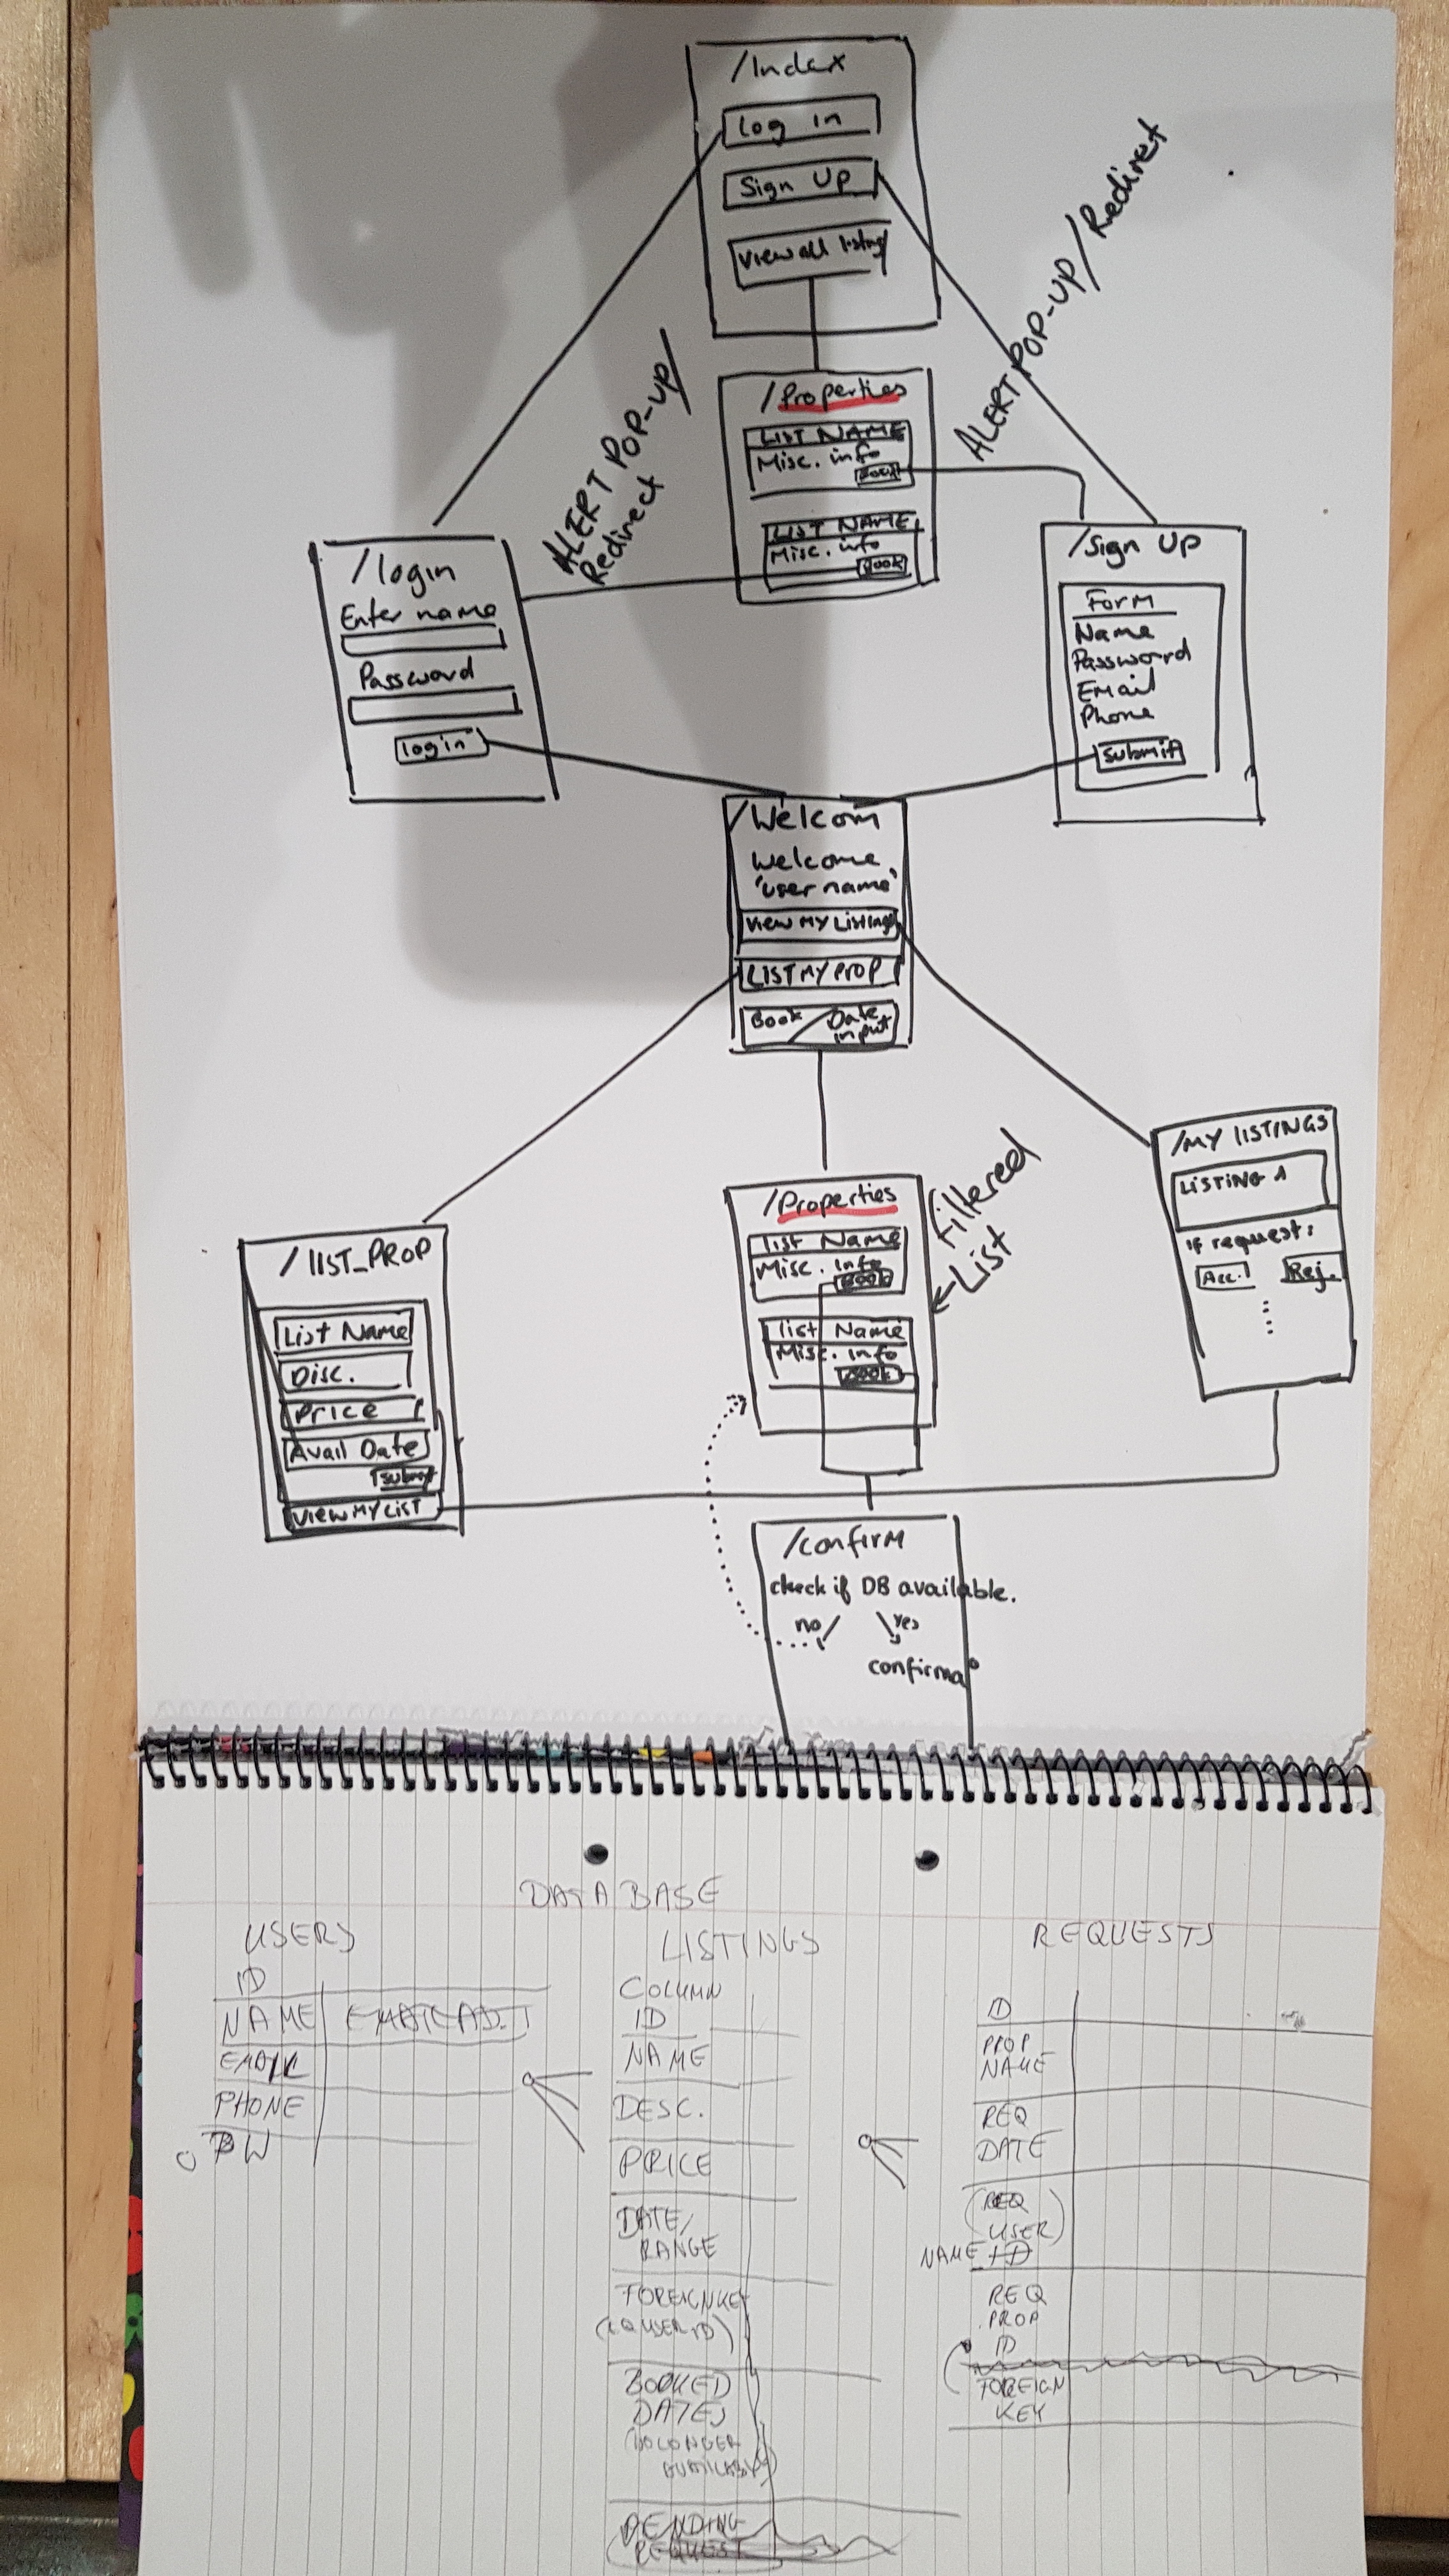 /Index
Log in
Sign Up
View all listing
ALERT POP-UP/Redirect
ALERT POP-up/
Redirect
/Properties
LIST NAME
Misc. info
Book
LIST NAME
Misc. info
Book
/login
Enter name
Password
login
/Sign UP
Form
Name
Password
Email
Phone
Submit
/Welcom
Welcome
'user name'
View MY Listings
LIST MY PROP
Book / Date
input
/MY LISTINGS
LISTING 1
If request:
Acc.
Rej.
/Properties
list Name
Misc. Info
Book
list Name
Misc. info
Book
Filtered
List
/LIST_PROP
List Name
Disc.
Price
Avail Date
Submit
VIEW MY LIST
/confirm
check if DB available.
no/ \yes
confirma
DATABASE
USERS
ID
NAME
EMAIL
PHONE
PW
LISTINGS
COLUMN
ID
NAME
DESC.
PRICE
DATE/
RANGE
FOREIGN KEY
USER ID)
BOOKED
DATES
(NO LONGER
AVAILABLE)
PENDING
REQUEST
REQUESTS
ID
PROP
NAME
REQ
DATE
(REQ
USER)
NAME ID
REQ
PROP
ID
FOREIGN
KEY